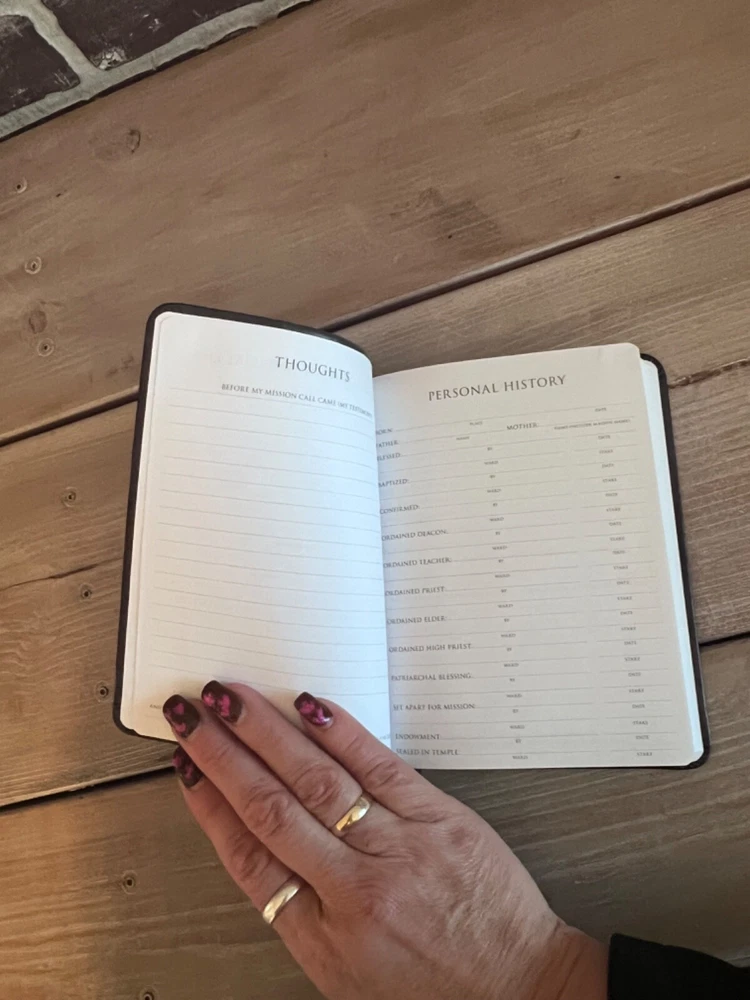 THOUGHTS
BEFORE MY MISSION CALL CAME (MY TESTIMONY
PERSONAL HISTORY
PLACE DATE
BORN:
FATHER: MOTHER:
WARD DATE
BLESSED:
BY STAKE
WARD DATE
BAPTIZED:
BY STAKE
WARD DATE
CONFIRMED:
BY STAKE
WARD DATE
ORDAINED DEACON:
BY STAKE
WARD DATE
ORDAINED TEACHER:
BY STAKE
WARD DATE
ORDAINED PRIEST:
BY STAKE
WARD DATE
ORDAINED ELDER:
BY STAKE
WARD DATE
ORDAINED HIGH PRIEST:
BY STAKE
WARD DATE
PATRIARCHAL BLESSING:
BY STAKE
WARD DATE
SET APART FOR MISSION:
BY STAKE
WARD DATE
ENDOWMENT:
BY STAKE
SEALED IN TEMPLE:
WARD